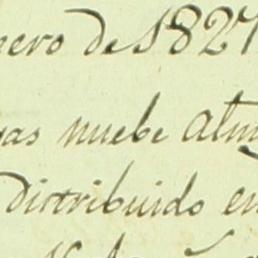 nero de 1827
as nuebe Alm
distribuido en